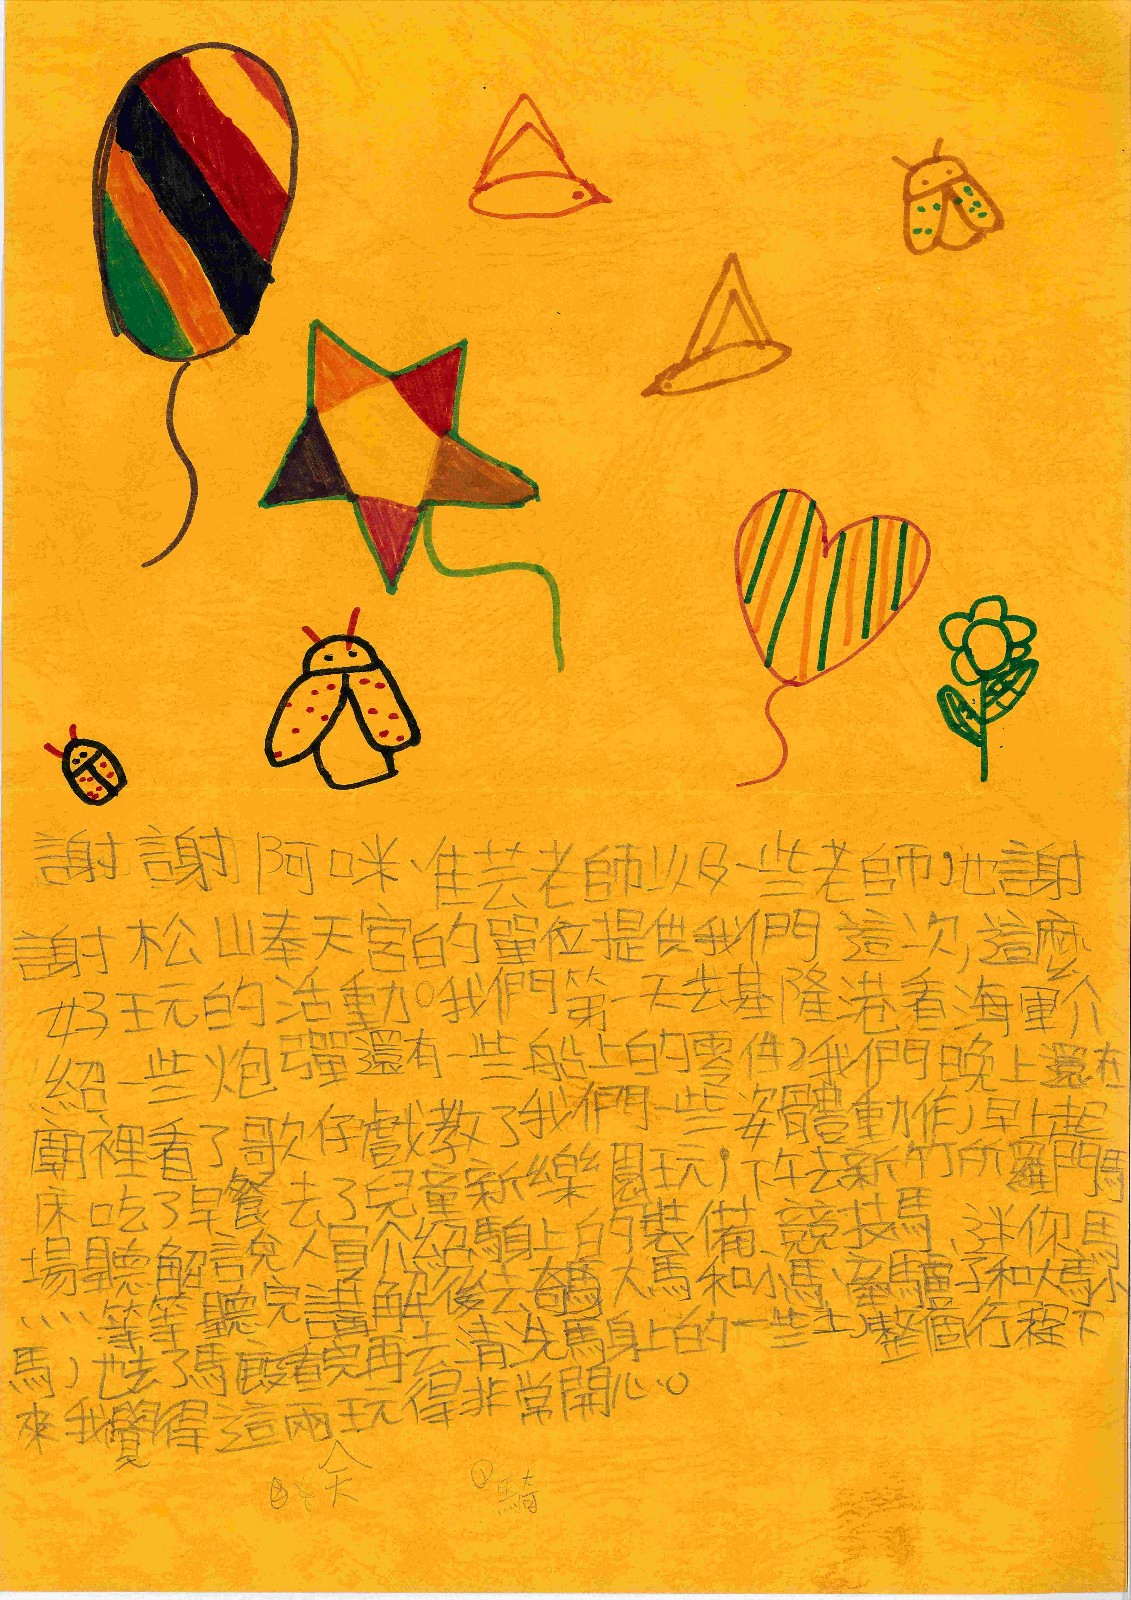 謝謝阿咪准芸老師以及一些老師,也謝
謝松山奉天宮的單位提供我們這次,這麼
好玩的活動。我們第一天去基隆港看海軍介
紹一些炮彈還有一些船上的零件,我們晚上還在
廟裡看了歌仔戲教了我們一些姿體動作,早上起
床吃了早餐去了兒童新樂園玩,下午去新竹所羅門馬
場聽解說人員介紹騎上的裝備、競技馬、迷你馬
……等等聽完講解後去 大馬和小馬、牽驢子和大馬小
馬,也去了馬廄看完再去清洗馬身上的一些土,整個行程下
來我覺得這兩 玩得非常開心。
天
騎